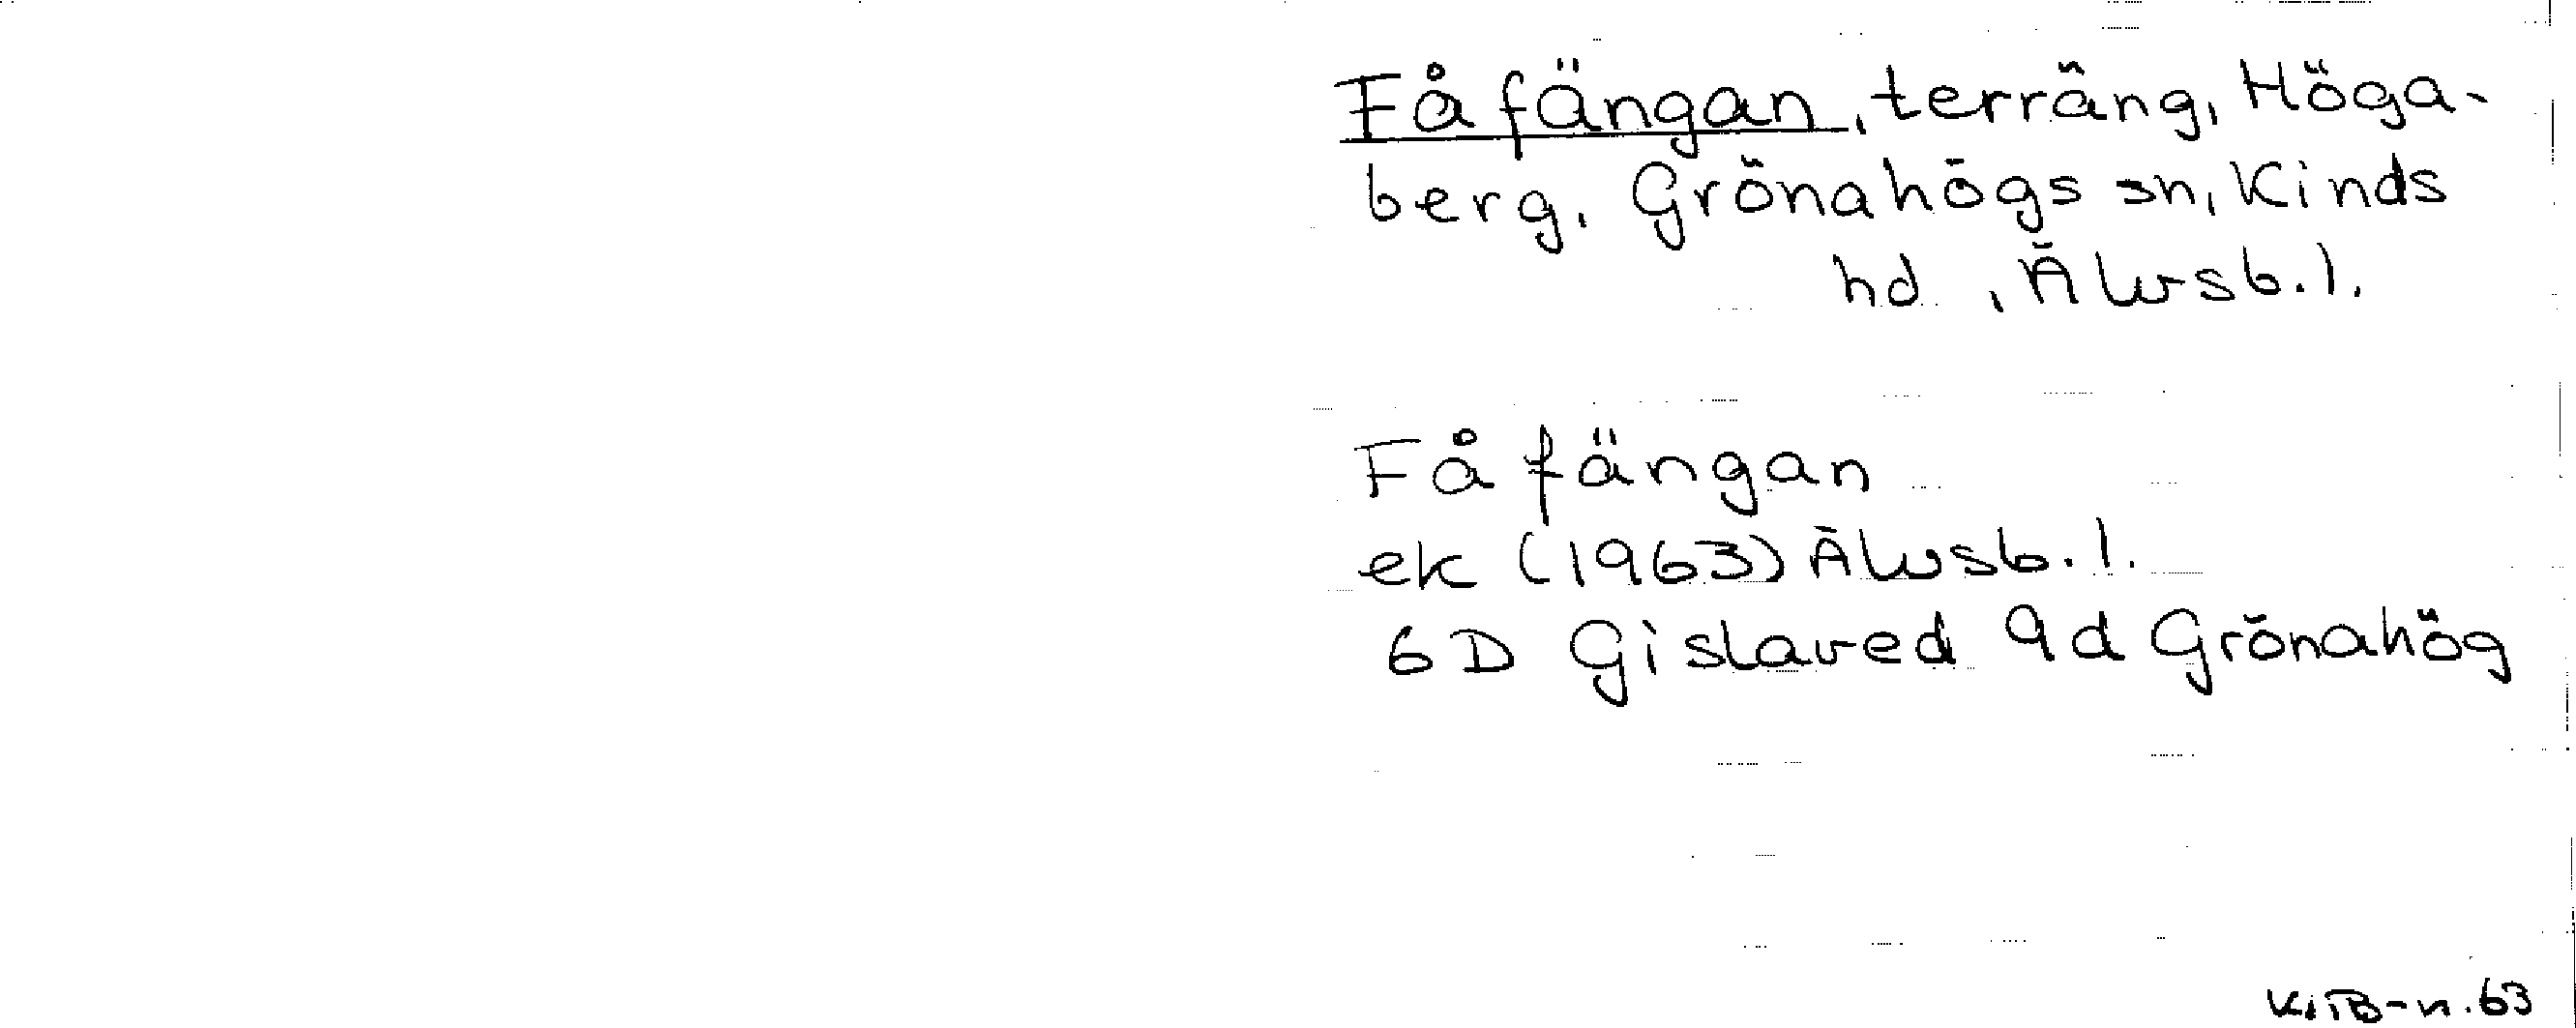 Fåfängan, terräng, Höga-
berg, Grönahögs sn, Kinds
hd, Älvsb.l.
Fåfängan
ek (1963) Älvsb.l.
6D Gislaved 9d Grönahög
K.i.B-n.63